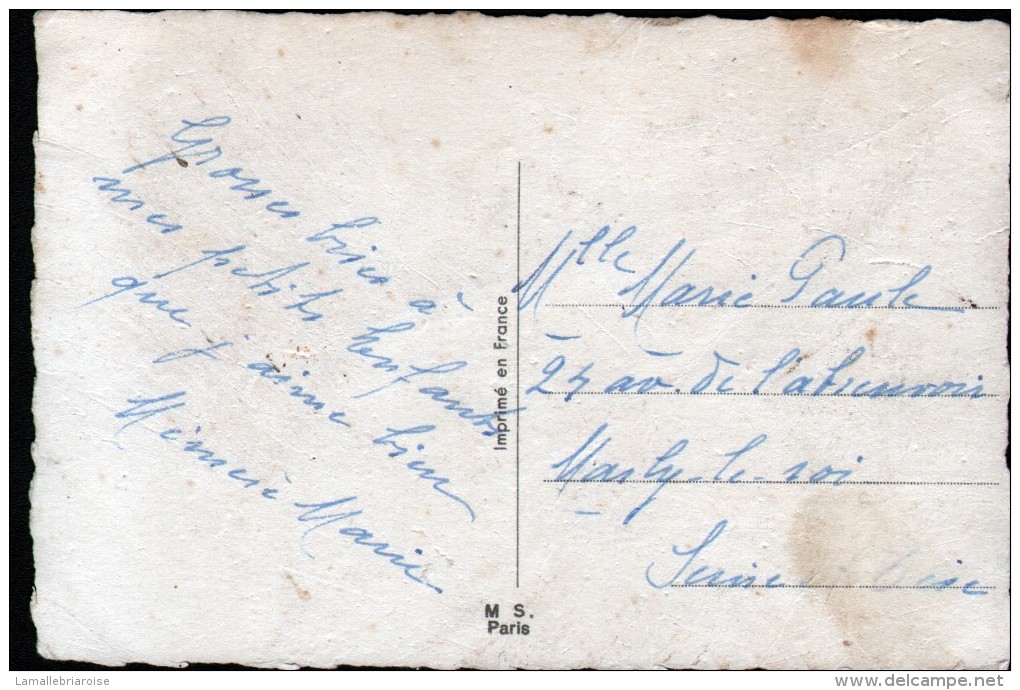 Grosses bises à
mes petits henfants
que j'aime bien
Mémère Marie
Imprimé en France
M S.
Paris
Mlle Marie Paule
av. de l'abreuvoir
Marly-le-roi
Seine
Lamallebriaroise
delcampe.net